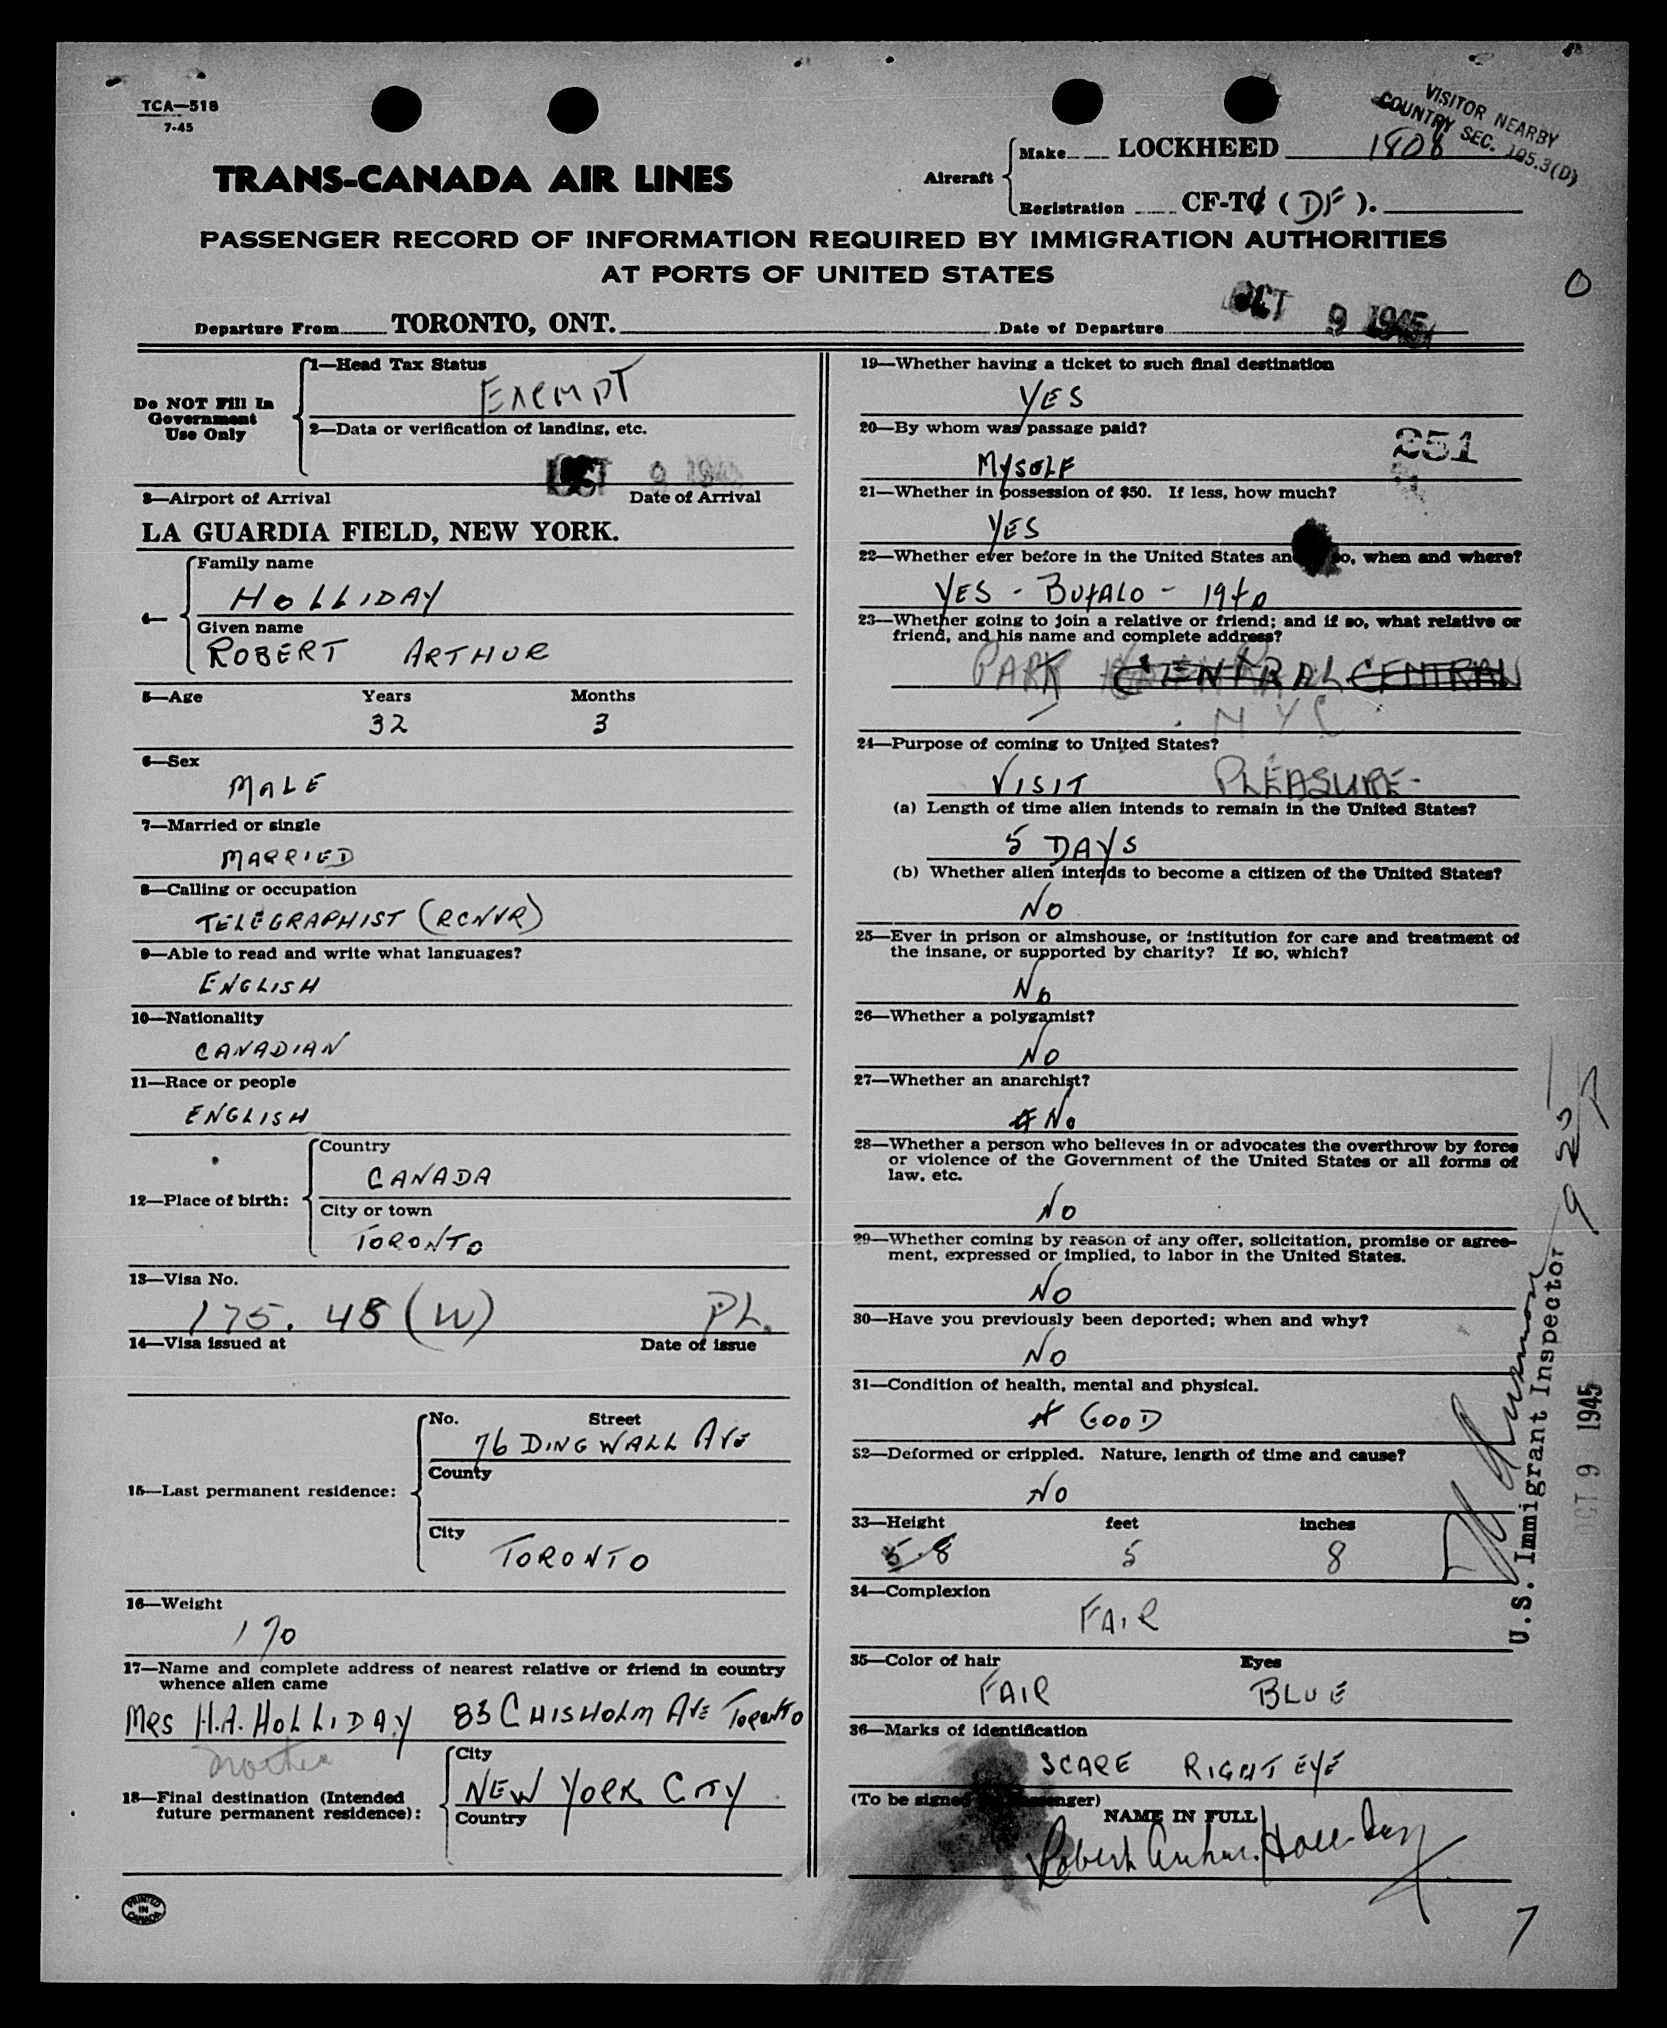 TCA—518
7-45
VISITOR NEARBY
COUNTRY SEC. 105.3(D)
TRANS-CANADA AIR LINES
Aircraft
Make LOCKHEED 1808
Registration CF-TC ( DF ).
PASSENGER RECORD OF INFORMATION REQUIRED BY IMMIGRATION AUTHORITIES
AT PORTS OF UNITED STATES
O
Departure From TORONTO, ONT. Date of Departure OCT 9 1945
Do NOT Fill In
Government
Use Only
1—Head Tax Status
EXEMPT
2—Data or verification of landing, etc.
OCT 9 1945
3—Airport of Arrival Date of Arrival
LA GUARDIA FIELD, NEW YORK.
4—
Family name
HOLLIDAY
Given name
ROBERT ARTHUR
5—Age Years Months
32 3
6—Sex
MALE
7—Married or single
MARRIED
8—Calling or occupation
TELEGRAPHIST (RCNVR)
9—Able to read and write what languages?
ENGLISH
10—Nationality
CANADIAN
11—Race or people
ENGLISH
12—Place of birth:
Country
CANADA
City or town
TORONTO
13—Visa No.
175. 48 (W) PL.
14—Visa issued at Date of issue
15—Last permanent residence:
No. Street
76 DINGWALL AVE
County
City
TORONTO
16—Weight
170
17—Name and complete address of nearest relative or friend in country
whence alien came
MRS H.A. HOLLIDAY 83 CHISHOLM AVE TORONTO
mother
18—Final destination (Intended
future permanent residence):
City
NEW YORK CITY
Country
PRINTED
IN
CANADA
19—Whether having a ticket to such final destination
YES
20—By whom was passage paid?
251
MYSELF
21—Whether in possession of $50. If less, how much?
YES
22—Whether ever before in the United States and so, when and where?
YES - BUFALO - 1940
23—Whether going to join a relative or friend; and if so, what relative or
friend, and his name and complete address?
PARK CENTRAL CENTRAL
NYC
24—Purpose of coming to United States?
VISIT PLEASURE-
(a) Length of time alien intends to remain in the United States?
5 DAYS
(b) Whether alien intends to become a citizen of the United States?
NO
25—Ever in prison or almshouse, or institution for care and treatment of
the insane, or supported by charity? If so, which?
No
26—Whether a polygamist?
NO
27—Whether an anarchist?
No
28—Whether a person who believes in or advocates the overthrow by force
or violence of the Government of the United States or all forms of
law, etc.
NO
29—Whether coming by reason of any offer, solicitation, promise or agree-
ment, expressed or implied, to labor in the United States.
NO
30—Have you previously been deported; when and why?
NO
31—Condition of health, mental and physical.
GOOD
32—Deformed or crippled. Nature, length of time and cause?
NO
33—Height feet inches
5.8 5 8
34—Complexion
FAIR
35—Color of hair Eyes
FAIR BLUE
36—Marks of identification
SCARE RIGHT EYE
(To be signed by passenger)
NAME IN FULL
Robert Arthur Holliday
7
U.S. Immigrant Inspector
OCT 9 1945
9 25 P